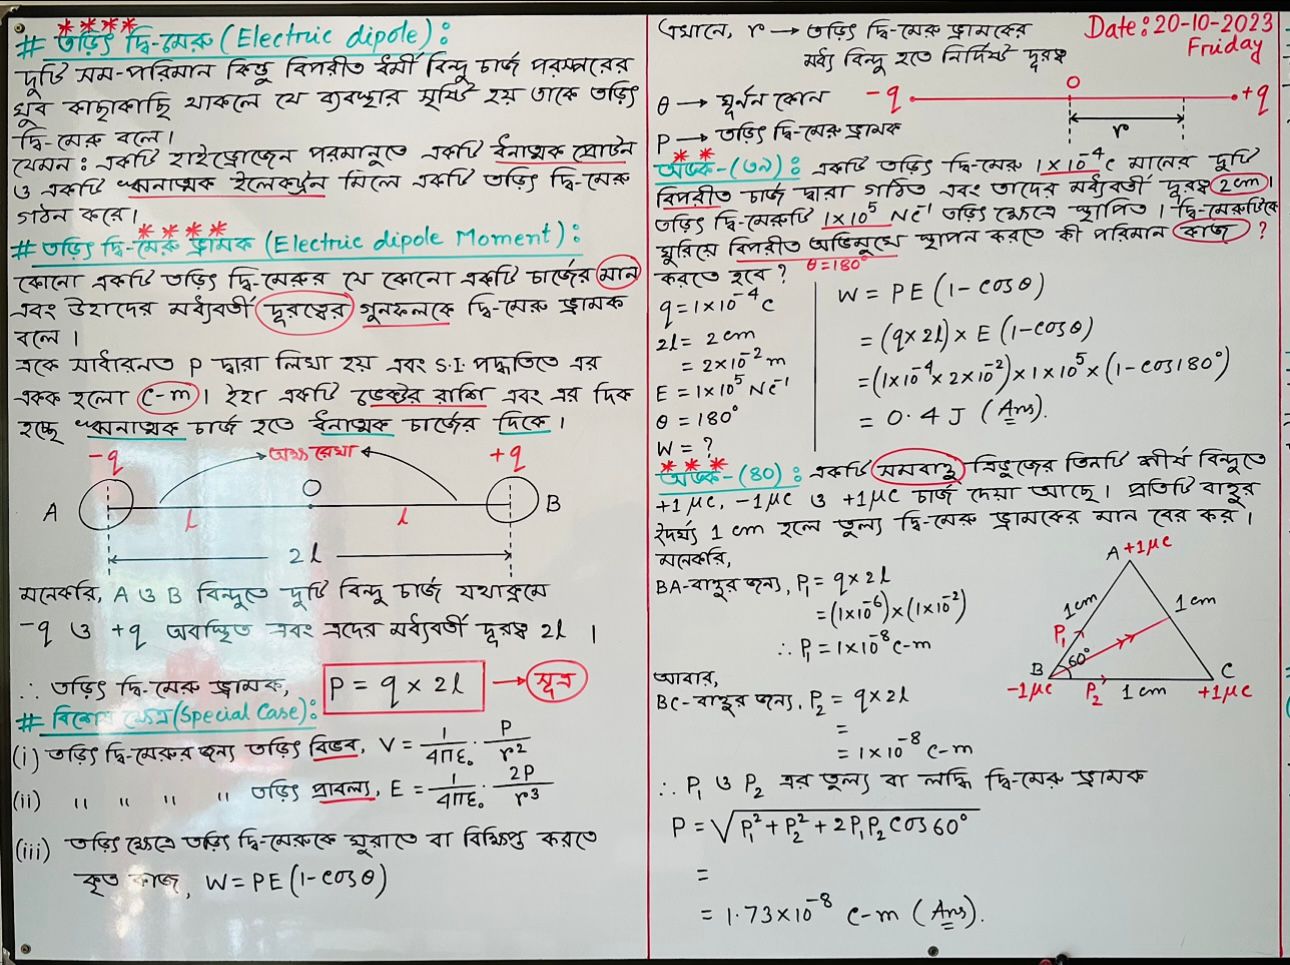 # তড়িৎ দ্বি-মেরু (Electric dipole) :
দুটি সম-পরিমান কিন্তু বিপরীত ধর্মী বিন্দু চার্জ পরস্পরের
খুব কাছাকাছি থাকলে যে ব্যবস্থার সৃষ্টি হয় তাকে তড়িৎ
দ্বি-মেরু বলে।
যেমন : একটি হাইড্রোজেন পরমানুতে একটি ধনাত্মক প্রোটন
ও একটি ঋনাত্মক ইলেকট্রন মিলে একটি তড়িৎ দ্বি-মেরু
গঠন করে।
# তড়িৎ দ্বি-মেরু ভ্রামক (Electric dipole Moment) :
কোনো একটি তড়িৎ দ্বি-মেরুর যে কোনো একটি চার্জের মান
এবং উহাদের মধ্যবর্তী দূরত্বের গুনফলকে দ্বি-মেরু ভ্রামক
বলে।
একে সাধারনত P দ্বারা লিখা হয় এবং S.I. পদ্ধতিতে এর
একক হলো C-m। ইহা একটি ভেক্টর রাশি এবং এর দিক
হচ্ছে ঋনাত্মক চার্জ হতে ধনাত্মক চার্জের দিকে।
-q অক্ষ রেখা +q
A O B
l l
2l
মনেকরি, A ও B বিন্দুতে দুটি বিন্দু চার্জ যথাক্রমে
-q ও +q অবস্থিত এবং এদের মধ্যবর্তী দূরত্ব 2l ।
∴ তড়িৎ দ্বি-মেরু ভ্রামক, P = q × 2l → সূত্র
# বিশেষ ক্ষেত্র (Special Case) :
(i) তড়িৎ দ্বি-মেরুর জন্য তড়িৎ বিভব, V = 1/4πε₀ · P/r²
(ii) " " " " তড়িৎ প্রাবল্য, E = 1/4πε₀ · 2P/r³
(iii) তড়িৎ ক্ষেত্রে তড়িৎ দ্বি-মেরুকে ঘুরাতে বা বিক্ষিপ্ত করতে
কৃত কাজ, W = PE (1-cosθ)
এখানে, r → তড়িৎ দ্বি-মেরু ভ্রামকের
মধ্য বিন্দু হতে নির্দিষ্ট দূরত্ব
Date: 20-10-2023
Friday
θ → ঘূর্নন কোন
P → তড়িৎ দ্বি-মেরু ভ্রামক
-q O +q
r
অংক-(৩৯) : একটি তড়িৎ দ্বি-মেরু 1×10⁻⁴ C মানের দুটি
বিপরীত চার্জ দ্বারা গঠিত এবং তাদের মধ্যবর্তী দূরত্ব 2cm।
তড়িৎ দ্বি-মেরুটি 1×10⁵ NC⁻¹ তড়িৎ ক্ষেত্রে স্থাপিত। দ্বি-মেরুটিকে
ঘুরিয়ে বিপরীত অভিমুখে স্থাপন করতে কী পরিমান কাজ ?
করতে হবে ? θ=180°
q = 1×10⁻⁴ C
2l = 2 cm
= 2×10⁻² m
E = 1×10⁵ NC⁻¹
θ = 180°
W = ?
W = PE (1-cosθ)
= (q×2l) × E (1-cosθ)
= (1×10⁻⁴ × 2×10⁻²) × 1×10⁵ × (1-cos180°)
= 0.4 J (Ans).
অংক-(৪০) : একটি সমবাহু ত্রিভুজের তিনটি শীর্ষ বিন্দুতে
+1μC, -1μC ও +1μC চার্জ দেয়া আছে। প্রতিটি বাহুর
দৈর্ঘ্য 1 cm হলে তুল্য দ্বি-মেরু ভ্রামকের মান বের কর।
মনেকরি,
BA-বাহুর জন্য, P₁ = q × 2l
= (1×10⁻⁶) × (1×10⁻²)
∴ P₁ = 1×10⁻⁸ C-m
আবার,
BC-বাহুর জন্য, P₂ = q × 2l
=
= 1×10⁻⁸ C-m
A +1μC
1cm 1cm
P₁
B 60° C
-1μC P₂ 1cm +1μC
∴ P₁ ও P₂ এর তুল্য বা লব্ধি দ্বি-মেরু ভ্রামক
P = √P₁² + P₂² + 2P₁P₂ cos60°
=
= 1.73×10⁻⁸ C-m (Ans).